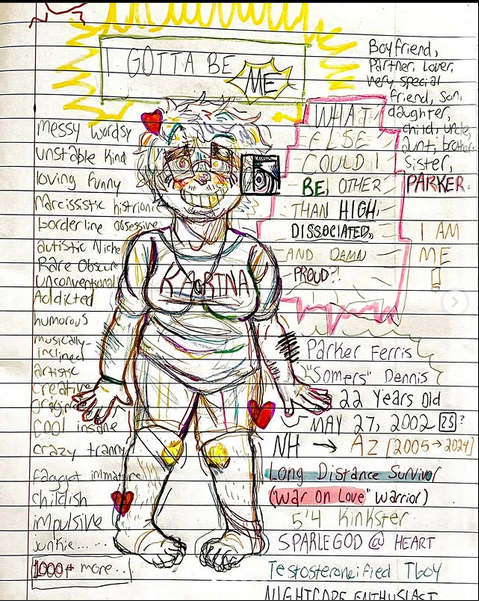 I GOTTA BE
ME
Boyfriend,
Partner, Lover,
very special
friend, son,
daughter,
child, uncle,
aunt, brother,
sister,
PARKER.
I AM
ME
WHAT
ELSE
COULD I
BE, OTHER
THAN HIGH,
DISSOCIATED,
AND DAMN
PROUD?!
messy wordsy
unstable kind
loving funny
Narcissistic histrionic
borderline obsessive
autistic Niche
Rare Obscure
unconventional
Addicted
humorous
musically-
inclined
artistic
creative
cool insane
crazy tranny
faggot immature
childish
impulsive
junkie......
1000+ more..
KATRINA
Parker Ferris
"Somers" Dennis
22 Years Old
MAY 27, 2002
NH → AZ [2005→2024]
Long Distance Survivor
(War on Love" warrior)
5'4 Kinkster
SPARLEGOD @ HEART
Testosteroneified Tboy
NIGHTCORE ENTHUSIAST